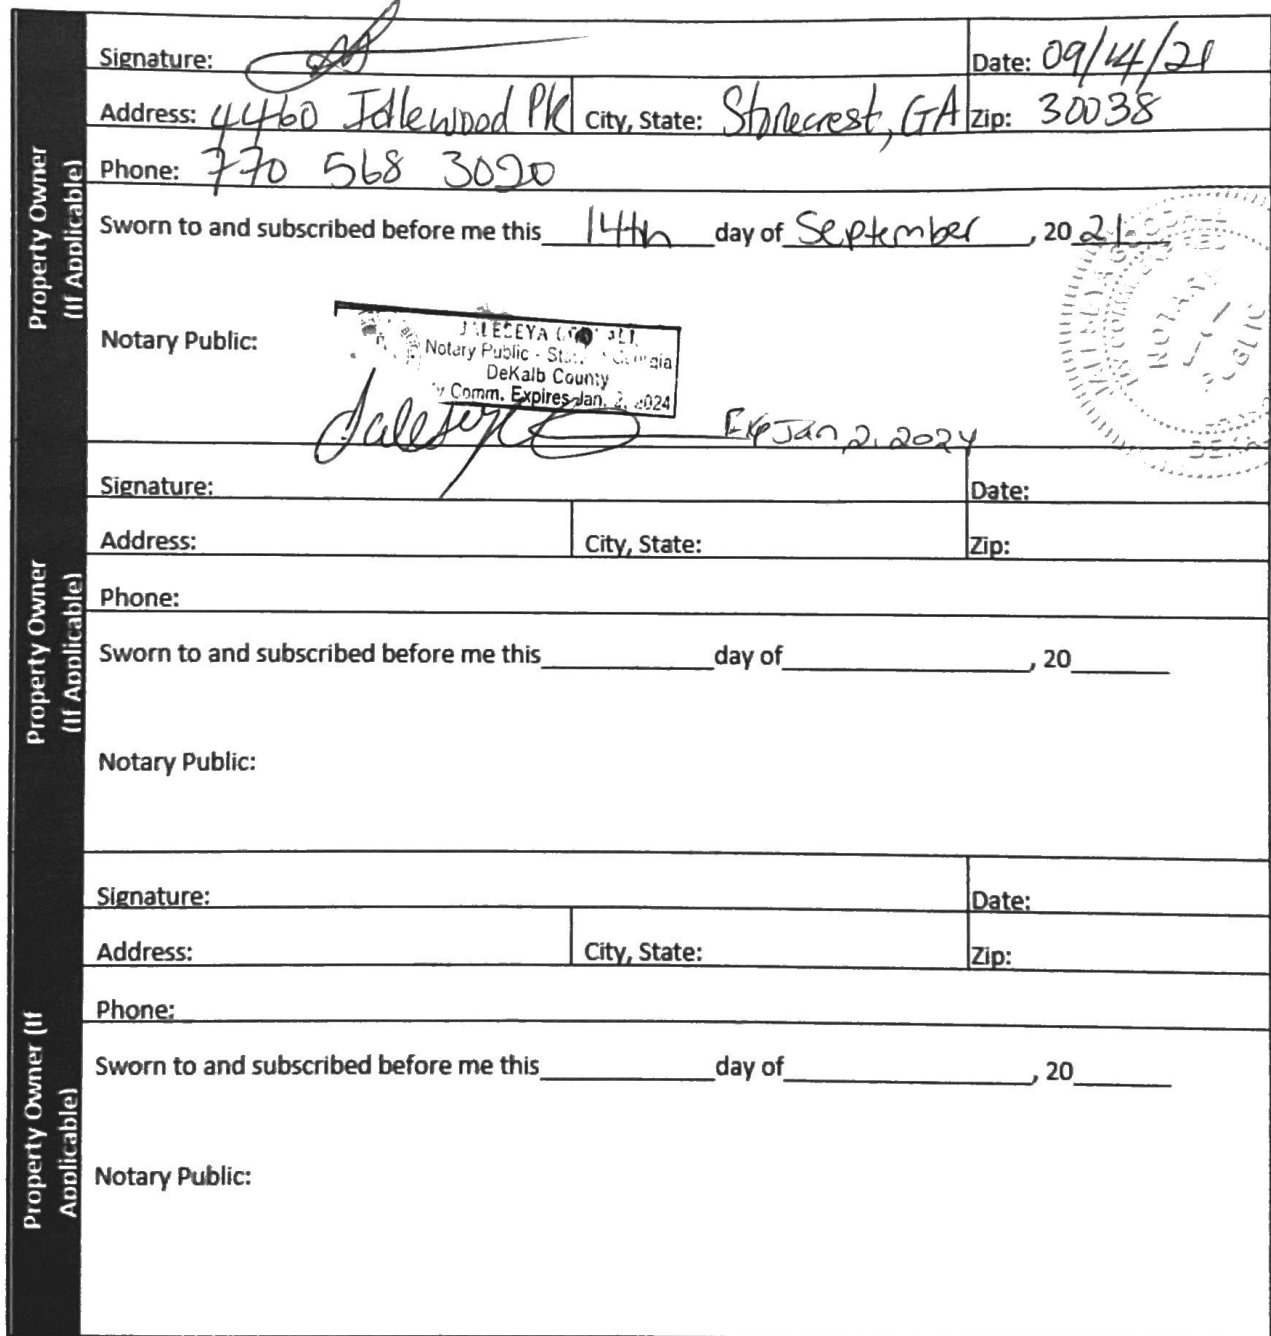 Property Owner (If Applicable)
Signature:
Date: 09/14/21
Address: 4460 Idlewood Pk City, State: Stonecrest, GA Zip: 30038
Phone: 770 568 3020
Sworn to and subscribed before me this 14th day of September, 2021
Notary Public:
Notary Public - State Georgia
DeKalb County
Comm. Expires Jan. 2, 2024
Exp Jan 2, 2024
Property Owner (If Applicable)
Signature: Date:
Address: City, State: Zip:
Phone:
Sworn to and subscribed before me this day of , 20
Notary Public:
Property Owner (If Applicable)
Signature: Date:
Address: City, State: Zip:
Phone:
Sworn to and subscribed before me this day of , 20
Notary Public: